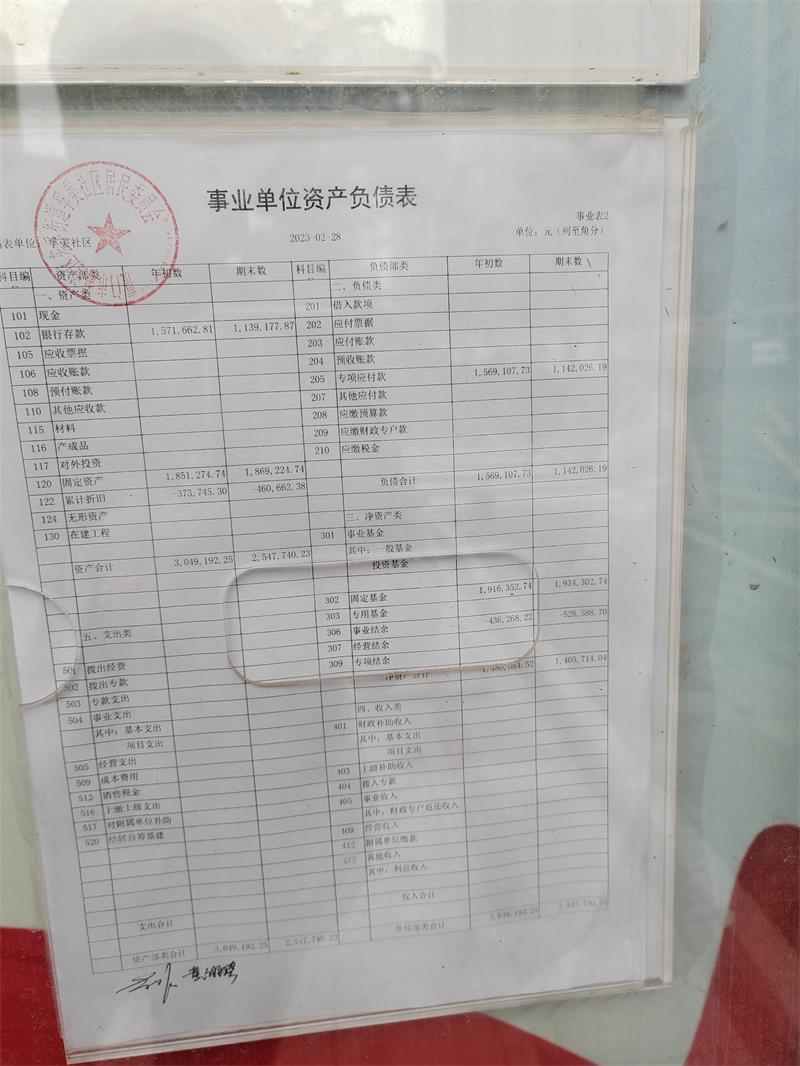 事业单位资产负债表
事业表2
2023-02-28
单位：元（列至角分）
表单位：孚美社区
科目编 资产部类 年初数 期末数 科目编 负债部类 年初数 期末数
一、资产类 二、负债类
101 现金 201 借入款项
102 银行存款 1,571,662.81 1,139,177.87 202 应付票据
105 应收票据 203 应付账款
106 应收账款 204 预收账款
108 预付账款 205 专项应付款 1,569,107.73 1,142,026.19
110 其他应收款 207 其他应付款
115 材料 208 应缴预算款
116 产成品 209 应缴财政专户款
117 对外投资 210 应缴税金
120 固定资产 1,851,274.74 1,869,224.74
122 累计折旧 -373,745.30 -460,662.38 负债合计 1,569,107.73 1,142,026.19
124 无形资产
130 在建工程 三、净资产类
301 事业基金
资产合计 3,049,192.25 2,547,740.23 其中：一般基金
投资基金
302 固定基金 1,916,352.74 1,934,302.74
303 专用基金
五、支出类 306 事业结余 -436,268.22 -528,588.70
307 经营结余
501 拨出经费 309 专项结余
502 拨出专款 净资产合计 1,480,084.52 1,405,714.04
503 专款支出
504 事业支出 四、收入类
其中：基本支出 401 财政补助收入
项目支出 其中：基本支出
505 经营支出 项目支出
509 成本费用 403 上级补助收入
512 销售税金 404 拨入专款
516 上缴上级支出 405 事业收入
517 对附属单位补助 其中：财政专户返还收入
520 结转自筹基建 409 经营收入
412 附属单位缴款
413 其他收入
其中：利息收入
收入合计
支出合计
资产部类合计 3,049,192.25 2,547,740.23 负债部类合计 3,049,192.25 2,547,740.23